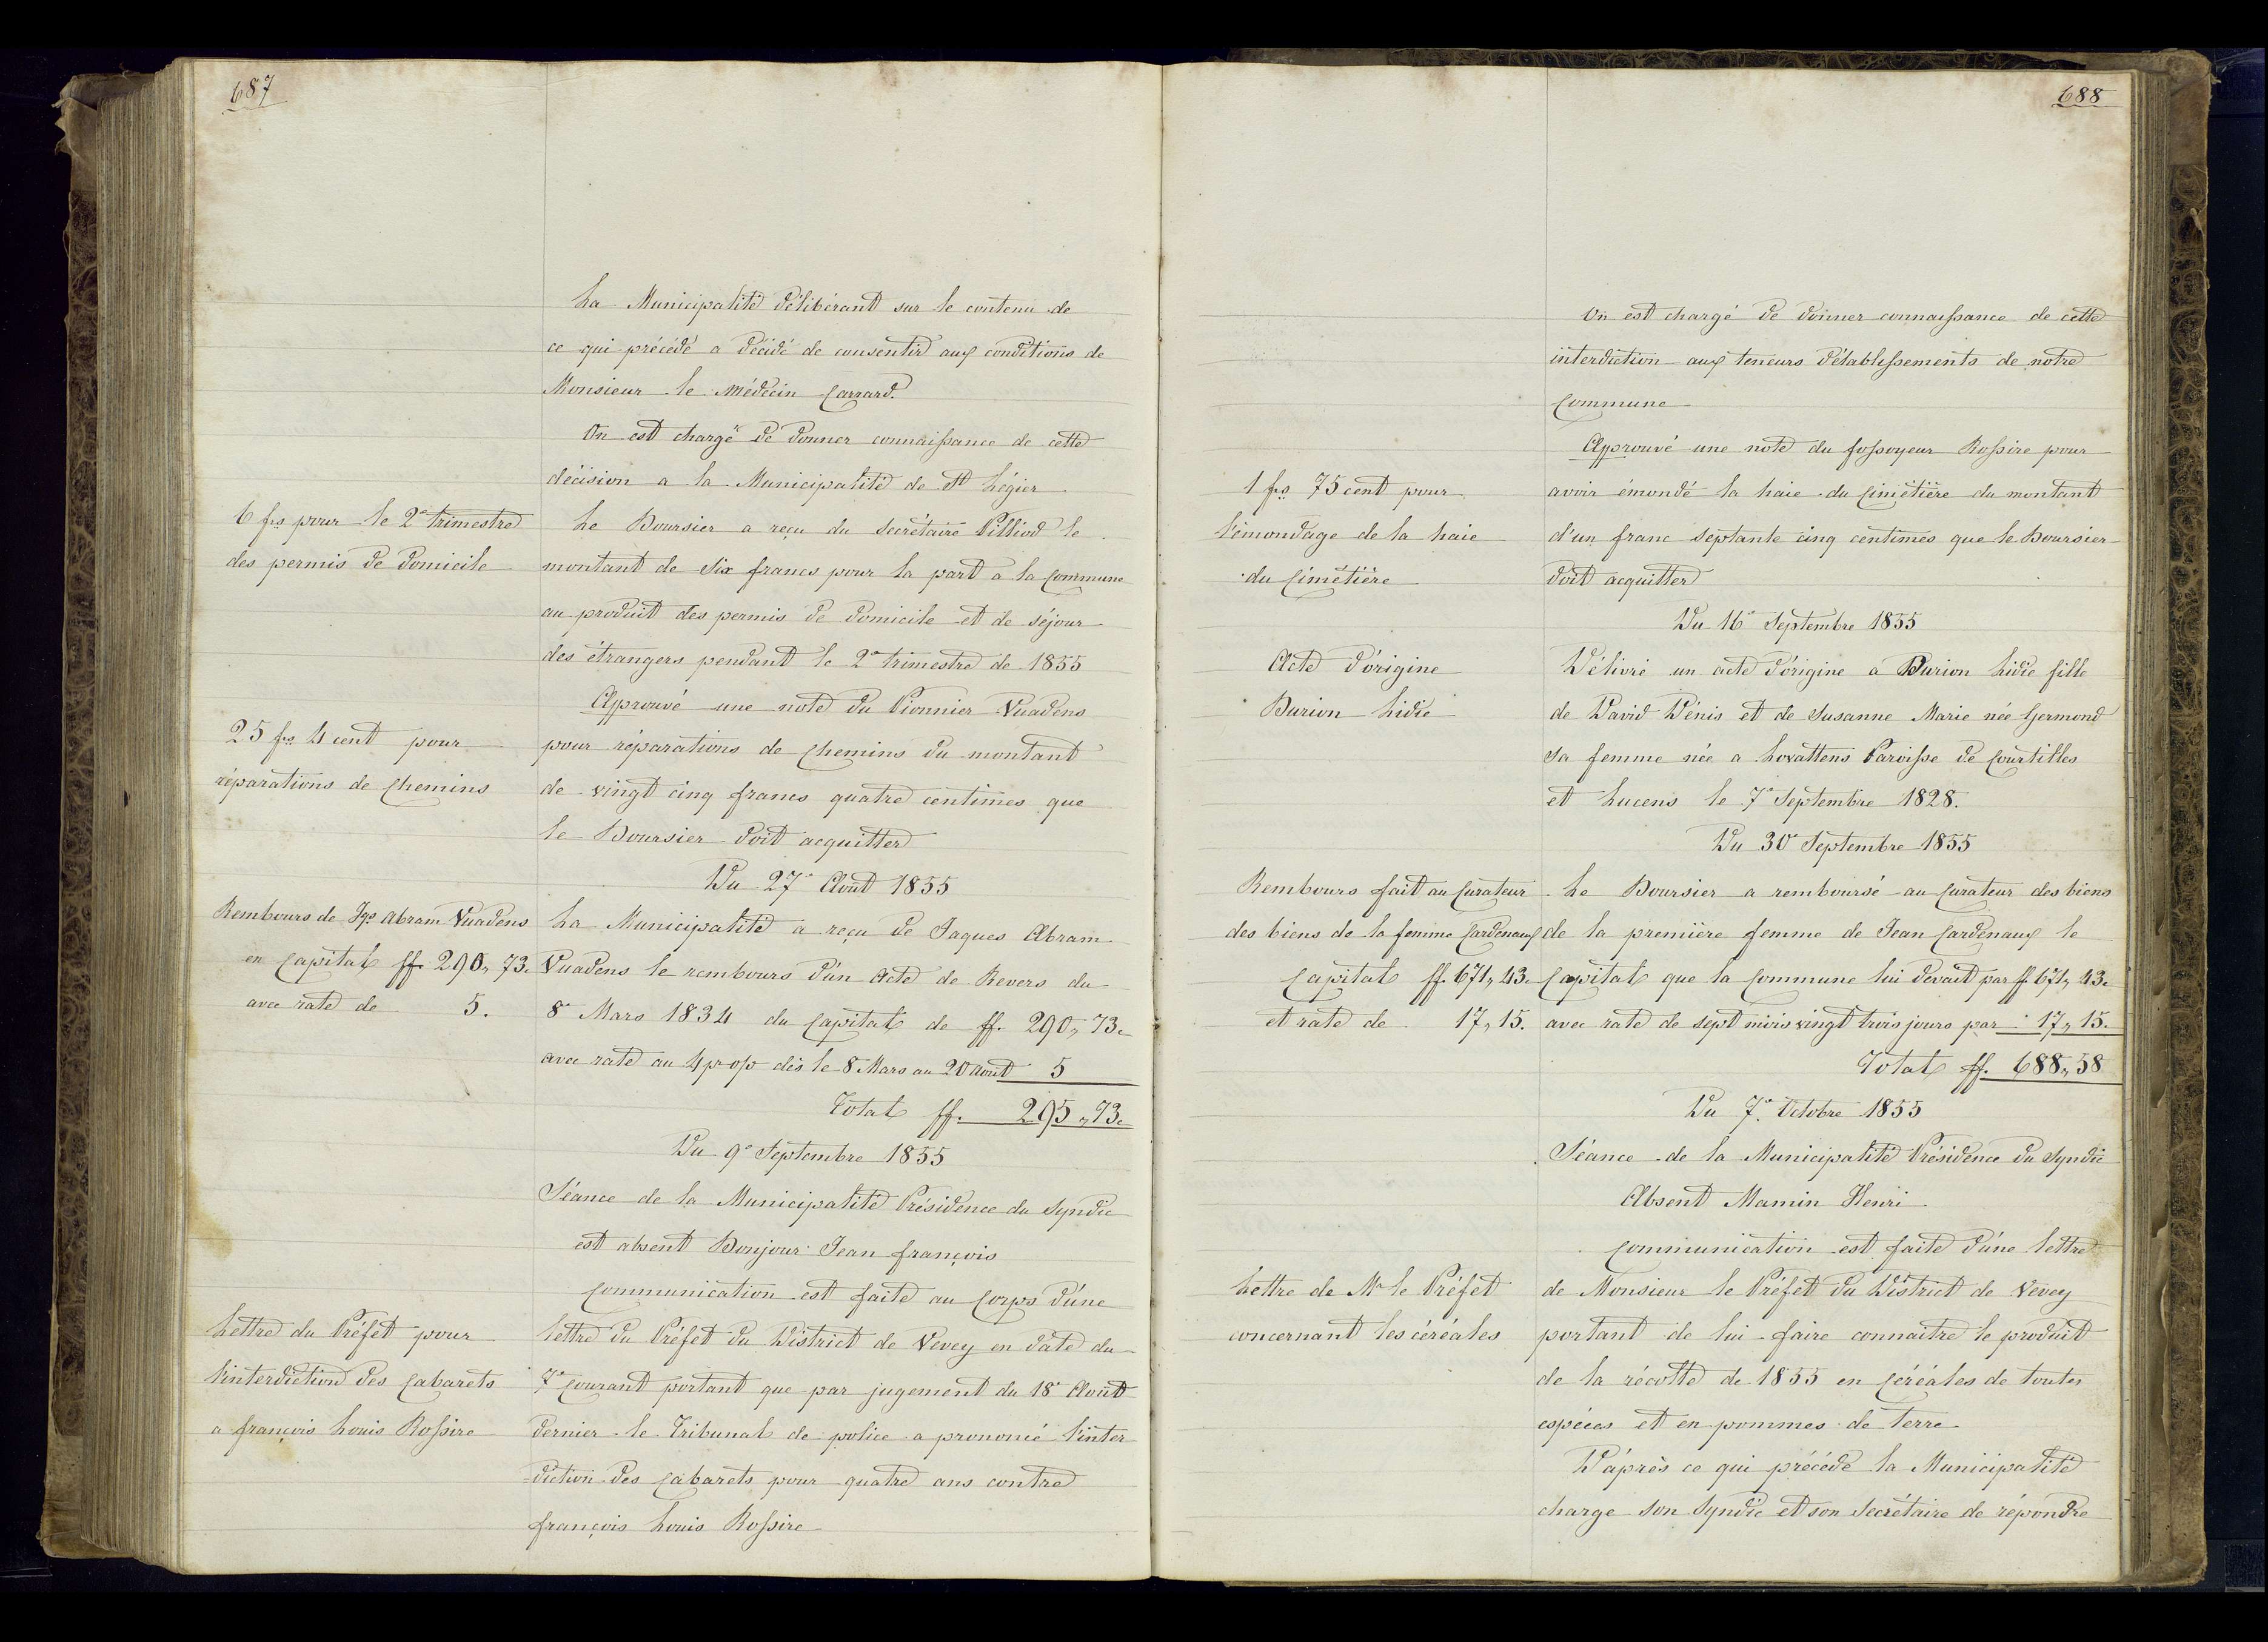 687
La Municipalité délibérant sur le contenu de
ce qui précédé a décidé de consentir aux conditions de
Monsieur le Médecin Carrard.
On est chargé de donner connaissance de cette
décision a la Municipalité de St Légier
6 frs pour le 2e trimestre
des permis de domicile
Le Boursier a reçu du Secrétaire Pilliod le
montant de Six francs pour la part a la Commune
au produit des permis de domicile et de séjour
des étrangers pendant le 2e trimestre de 1855
25 frs 4 cent pour
réparations de Chemins
Approuvé une note du Pionnier Vuadens
pour réparations de Chemins du montant
de vingt cinq francs quatre centimes que
le Boursier doit acquitter
Du 27e Août 1855
Rembours de Jqs Abram Vuadens
en Capital ff. 290,, 73c
avec rate de 5.
La Municipalité a reçu de Jaques Abram
Vuadens le rembours d'un Acte de Revers du
8e Mars 1834 du Capital de ff. 290,, 73c
avec rate au 4 p o/o dès le 8 Mars au 20 Août 5
Total ff. 295,, 73c
Du 9e Septembre 1855
Séance de la Municipalité Présidence du Syndic
est absent Bonjour Jean françois
Lettre du Préfet pour
l'interdiction des Cabarets
a françois Louis Rossire
Communication est faite au Corps d'une
lettre du Préfet du District de Vevey en date du
7e Courant portant que par jugement du 18e Août
dernier le Tribunal de police a prononcé l'inter
-diction des Cabarets pour quatre ans contre
françois Louis Rossire
688
On est chargé de donner connaissance de cette
interdiction aux teneurs d'établissements de notre
Commune
1 frs 75 cent pour
l'émondage de la haie
du Cimétière
Approuvé une note du fossoyeur Rossire pour
avoir émondé la haie du Cimétière du montant
d'un franc septante cinq centimes que le Boursier
doit acquitter
Du 16e Septembre 1855
Acte d'origine
Burion Lidie
Délivré un acte d'origine a Burion Lidie fille
de David Dénis et de Susanne Marie née Germond
sa femme née a Lovattens Paroisse de Courtilles
et Lucens le 7e Septembre 1828.
Du 30e Septembre 1855
Rembours fait au Curateur
des biens de la femme Cardenaux
Capital ff. 671,, 43c
et rate de 17,, 15.
Le Boursier a remboursé au Curateur des biens
de la première femme de Jean Cardenaux le
Capital que la Commune lui devait par ff. 671,, 43c
avec rate de sept mois vingt trois jours par 17,, 15.
Total ff. 688,, 58
Du 7e Octobre 1855
Séance de la Municipalité Présidence du Syndic
Absent Mamin Henri
Lettre de Mr le Préfet
concernant les céréales
Communication est faite d'une lettre
de Monsieur le Préfet du District de Vevey
portant de lui faire connaitre le produit
de la récolte de 1855 en Céréales de toutes
espèces et en pommes de terre
D'après ce qui précéde la Municipalité
charge son Syndic et son Secrétaire de répondre